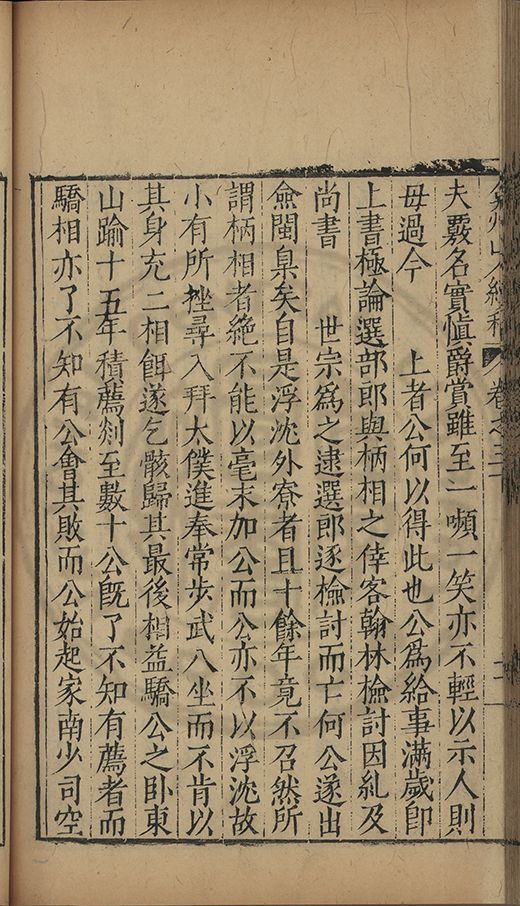 弇州山人續稿 卷之三
夫覈名實慎爵賞雖至一嚬一笑亦不輕以示人則
毋過今　上者公何以得此也公為給事滿歲卽
上書極論選部郎與柄相之倖客翰林檢討因糺及
尚書　世宗為之逮選郎逐檢討而亡何公遂出
僉閩臬矣自是浮沈外寮者且十餘年竟不召然所
謂柄相者絶不能以毫末加公而公亦不以浮沈故
小有所挫尋入拜太僕進奉常步武八坐而不肯以
其身充二相餌遂乞骸歸其最後相益驕公之卧東
山踰十五年積薦剡至數十公旣了不知有薦者而
驕相亦了不知有公會其敗而公始起家南少司空